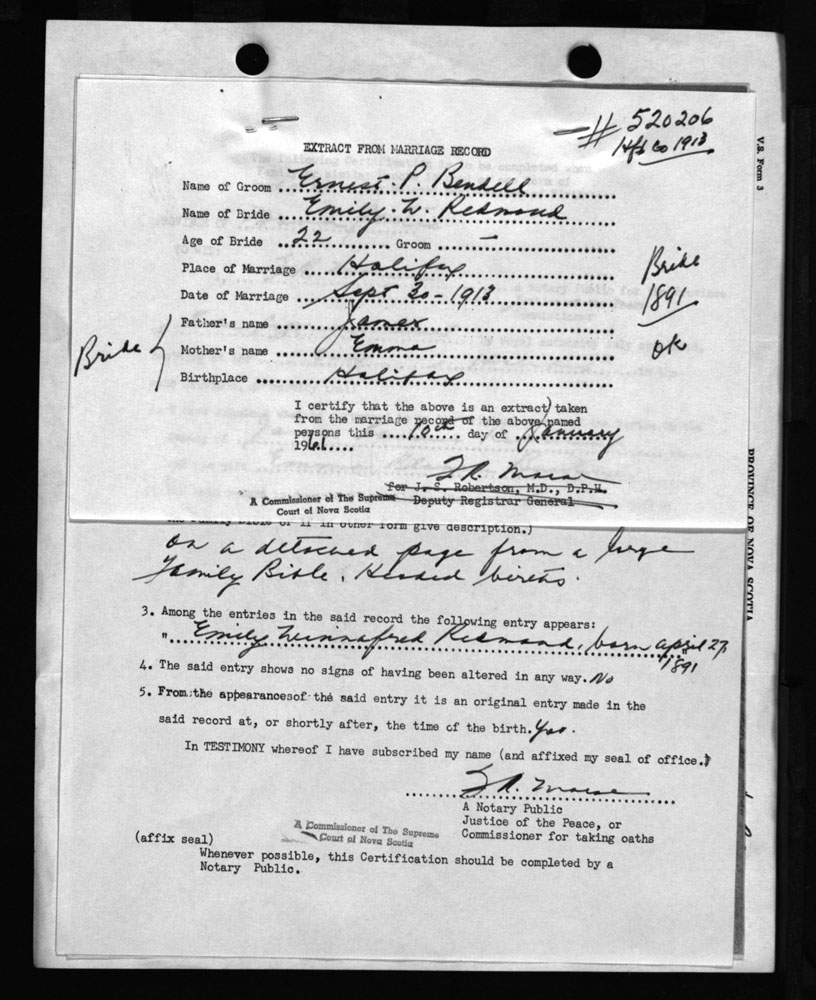 # 520206
Hfx Co 1913
EXTRACT FROM MARRIAGE RECORD
Name of Groom Ernest P. Bendell
Name of Bride Emily W. Redmond
Age of Bride 22 Groom —
Place of Marriage Halifax
Date of Marriage Sept 30 - 1913
Father's name James
Mother's name Emma
Birthplace Halifax
Bride
Bride
1891
OK
I certify that the above is an extract taken
from the marriage record of the above named
persons this 10th day of January
1961
for J. S. Robertson, M.D., D.P.H.
Deputy Registrar General
A Commissioner of The Supreme
Court of Nova Scotia
V.S. Form 3
PROVINCE OF NOVA SCOTIA
the Family Bible or if in other form give description.)
on a detached page from a large
Family Bible. Headed births.
3. Among the entries in the said record the following entry appears:
"Emily Winnafred Redmond, born april 27,
1891"
4. The said entry shows no signs of having been altered in any way. No
5. From the appearances of the said entry it is an original entry made in the
said record at, or shortly after, the time of the birth. Yes.
In TESTIMONY whereof I have subscribed my name (and affixed my seal of office.)
A Notary Public
Justice of the Peace, or
Commissioner for taking oaths
A Commissioner of The Supreme
Court of Nova Scotia
(affix seal)
Whenever possible, this Certification should be completed by a
Notary Public.